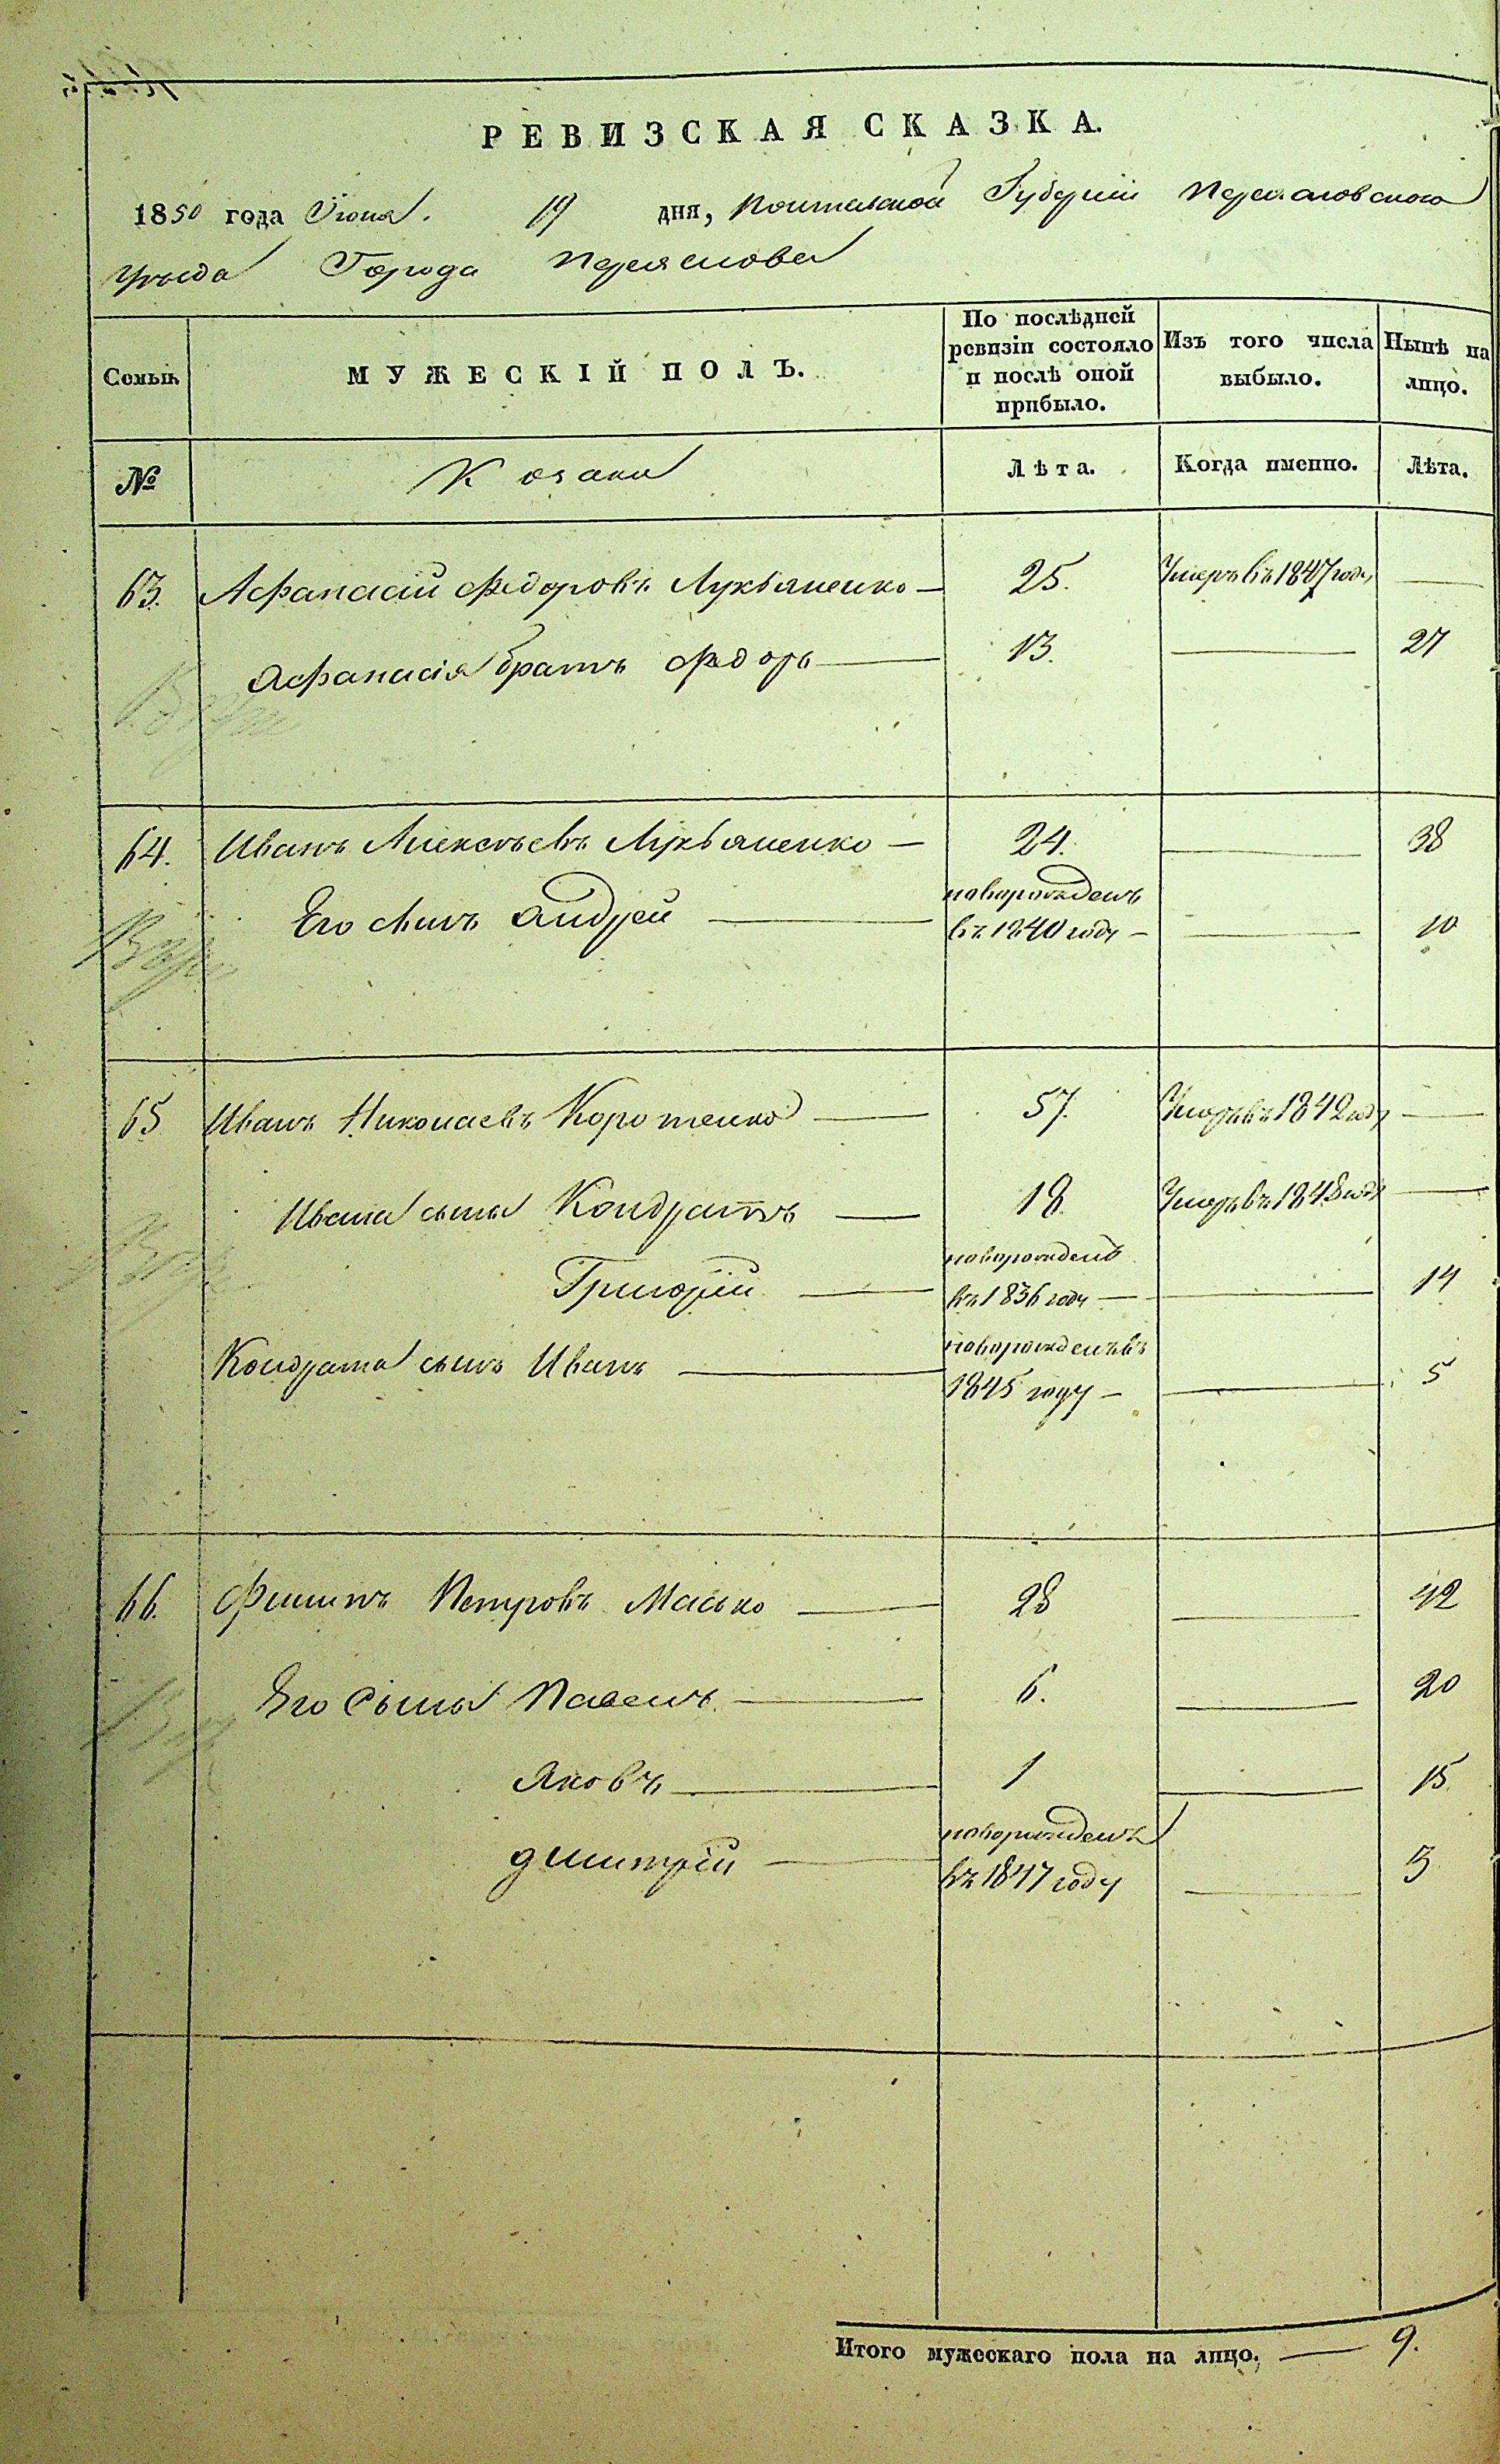 РЕВИЗСКАЯ СКАЗКА.
1850 года Іюня 19 дня, Полтавской Губерніи Переяславского
Уѣзда Города Переяслова
Семьи. МУЖЕСКІЙ ПОЛЪ. По послѣдней ревизіи состояло и послѣ оной прибыло. Изъ того числа выбыло. Нынѣ на лицо.
№ Козаки Лѣта. Когда именно. Лѣта.
63. Афанасій Федоровъ Лукьяненко — 25. Умеръ въ 1847 году —
Афанасія братъ Федоръ — 13. — 27
64. Иванъ Алексѣевъ Лукьяненко — 24. — 38
Его сынъ Андрей — новорожденъ въ 1840 году — — 10
65 Иванъ Николаевъ Коротенко — 57. Умеръ въ 1842 году —
Ивана сыны Кондратъ — 18 Умеръ въ 1848 году —
Григорій — новорожденъ въ 1836 году — — 14
Кондрата сынъ Иванъ — новорожденъ въ 1845 году — — 5
66. Филипъ Петровъ Масько — 28 — 42
Его сыны Павелъ — 6. — 20
Яковъ — 1 — 15
Дмитрій — новорожденъ въ 1847 году — 3
Итого мужескаго пола на лицо. — 9.